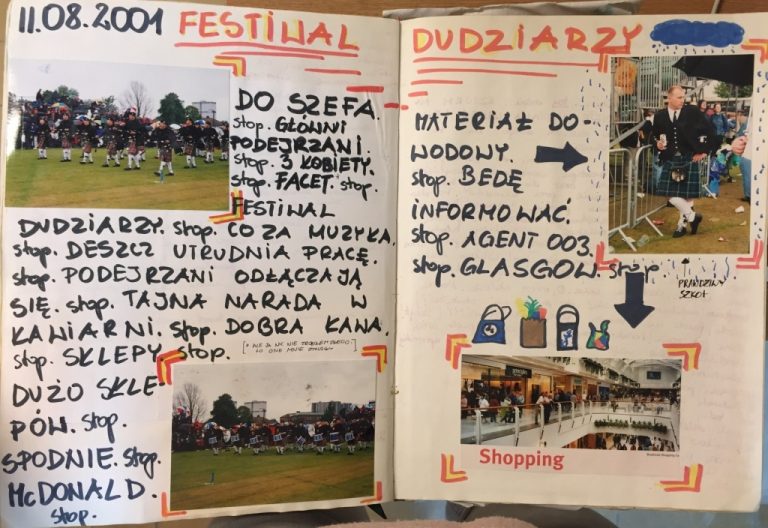 11.08.2001 FESTIWAL
DO SZEFA.
stop. GŁÓWNI
PODEJRZANI.
stop. 3 KOBIETY.
stop. FACET. stop.
FESTIWAL
DUDZIARZY. stop. CO ZA MUZYKA.
stop. DESZCZ UTRUDNIA PRACĘ.
stop. PODEJRZANI ODŁĄCZAJĄ
SIĘ. stop. TAJNA NARADA W
KAWIARNI. stop. DOBRA KAWA.
stop. SKLEPY stop.
DUŻO SKLE-
PÓW. stop.
SPODNIE. stop.
McDONALD.
stop.
DUDZIARZY
MATERIAŁ DO-
WODOWY.
stop. BEDĘ
INFORMOWAĆ.
stop. AGENT 003.
stop. GLASGOW. stop.
PRAWDZIWY
SZKOT
Shopping